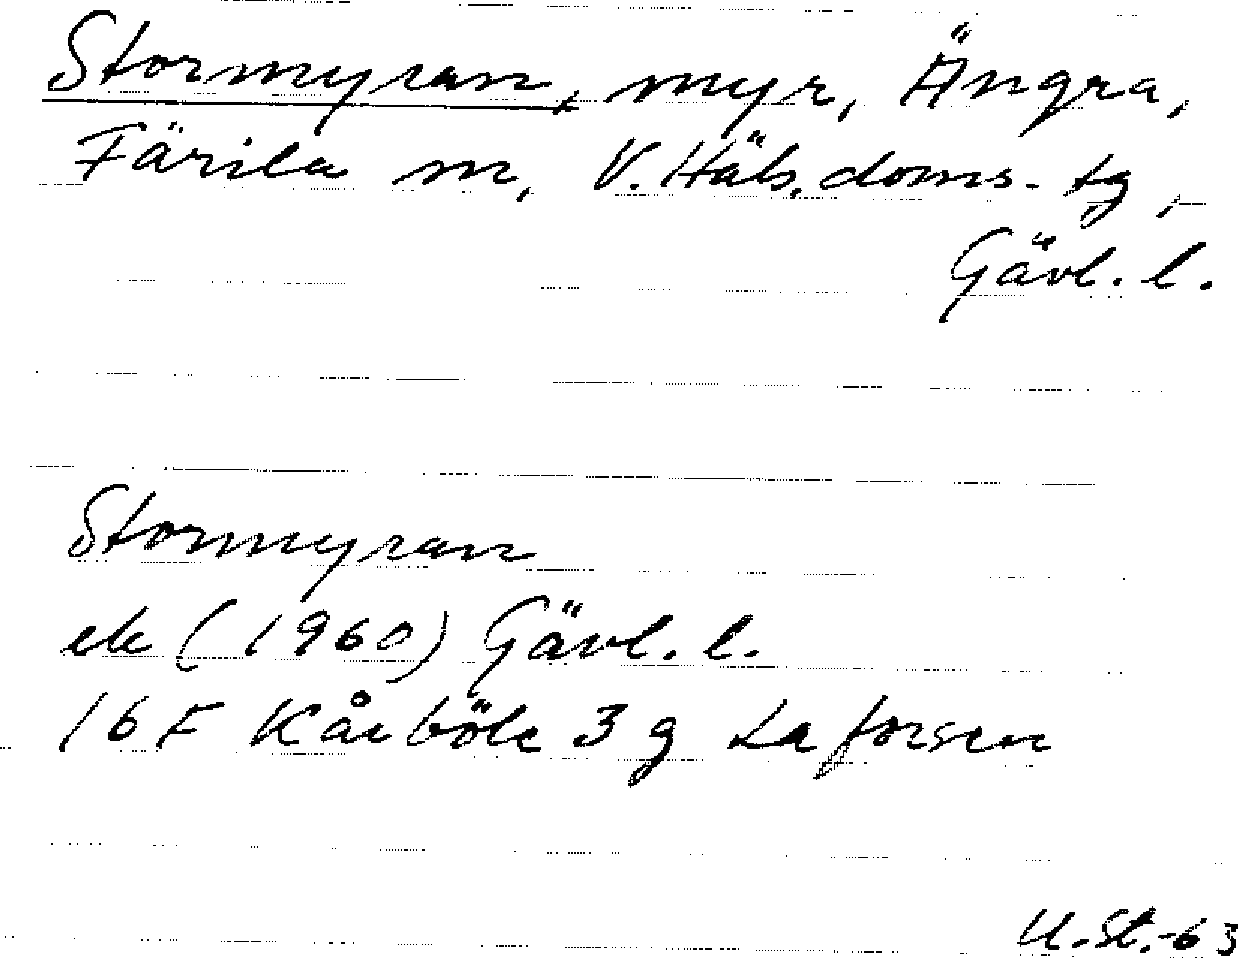 Stormyran, myr, Ängra,
Färila sn, V. Häls. doms. tg,
Gävl. l.
Stormyran
ek (1960) Gävl. l.
16 F Kårböle 3 g Laforsen
U. St. -63